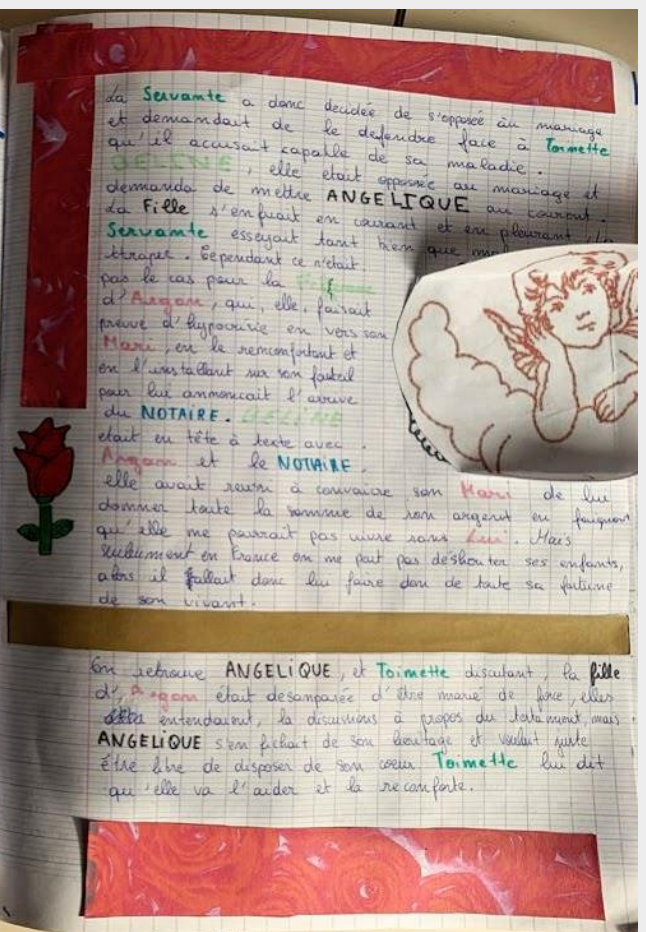 La Servante a donc decidée de s'opposée au mariage
et demandait de le defendre face à Toinette
qu'il accusait capable de sa maladie.
BELINE, elle était opposée au mariage et
demanda de mettre ANGELIQUE au courant.
La Fille s'enfuait en courant et en pleurant
Servante esseyait tant bien que mal
ttraper. Cependant ce n'était
pas le cas pour la
d'Argan, qui, elle, faisait
preuve d'hypocrisie en vers son
Mari, en le remconfortant et
en l'installant sur son fauteil
pour lui annoncait l'arrive
du NOTAIRE. BELINE
etait en tête à texte avec
Argan et le NOTAIRE.
elle avait reussi à convaicre son Mari de lui
donner toute la somme de son argent en feignant
qu'elle ne pourrait pas vivre sans Lui. Mais
seulument en France on ne peut pas déshouter ses enfants,
alors il fallait donc lui faire don de toute sa fortune
de son vivant.
On retrouve ANGELIQUE, et Toimette discutant, la fille
d', Argan était desanparée d'être marié de force, elles
entendaient, la discussions à propos du testament, mais
ANGELIQUE s'en fichait de son heuitage et voulait juste
être libre de disposer de son coeur Toimette lui dit
qu'elle va l'aider et la reconforte.